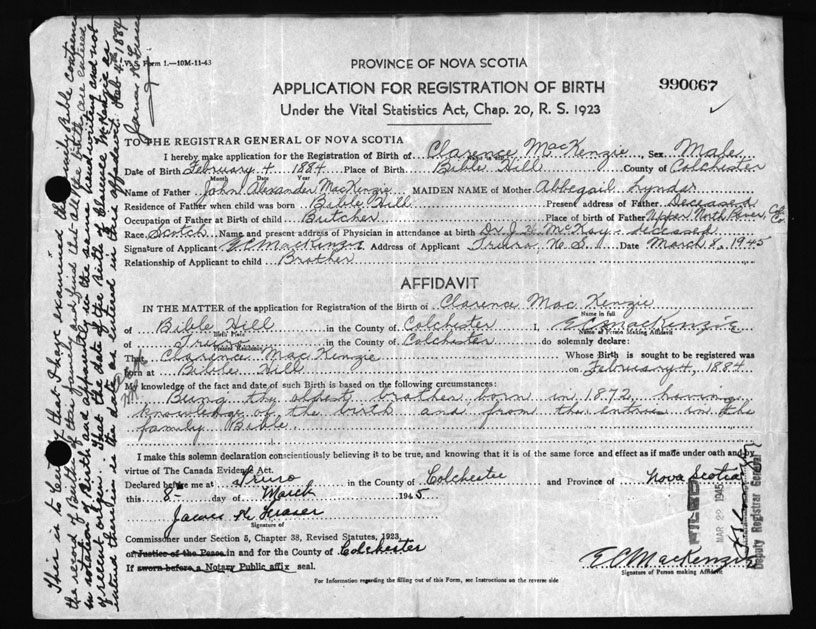 Form 1.—10M-11-43
PROVINCE OF NOVA SCOTIA
APPLICATION FOR REGISTRATION OF BIRTH
990067
Under the Vital Statistics Act, Chap. 20, R. S. 1923
TO THE REGISTRAR GENERAL OF NOVA SCOTIA
I hereby make application for the Registration of Birth of Clarence MacKenzie, Sex Male
Date of Birth February 4 1884 Place of Birth Bible Hill County of Colchester
Month Date Year
Name of Father John Alexander MacKenzie MAIDEN NAME of Mother Abbegail Lyndas
Residence of Father when child was born Bible Hill Present address of Father Deceased
Occupation of Father at Birth of child Butcher Place of birth of Father Upper North River, Col. Co.
Race Scotch Name and present address of Physician in attendance at birth Dr. J. McKay - deceased
Signature of Applicant E C MacKenzie Address of Applicant Truro N.S. Date March 8, 1945
Relationship of Applicant to child Brother
AFFIDAVIT
IN THE MATTER of the application for Registration of the Birth of Clarence Mac Kenzie
Name in full
of Bible Hill in the County of Colchester I, E C MacKenzie
Birth Place Name of Person Making Affidavit
of Truro in the County of Colchester do solemnly declare:
Present Residence
That Clarence MacKenzie Whose Birth is sought to be registered was
born at Bible Hill on February 4, 1884
My knowledge of the fact and date of such Birth is based on the following circumstances:
Being the oldest brother, born in 1872, having
knowledge of the birth and from the entries in the
family Bible.
I make this solemn declaration conscientiously believing it to be true, and knowing that it is of the same force and effect as if made under oath and by
virtue of The Canada Evidence Act.
Declared before me at Truro in the County of Colchester and Province of Nova Scotia
this 8 day of March 1945
James Fraser
Signature of
Commissioner under Section 5, Chapter 38, Revised Statutes, 1923,
or Justice of the Peace in and for the County of Colchester
If sworn before a Notary Public affix seal.
E C MacKenzie
Signature of Person making Affidavit
For Information regarding the filling out of this Form, see Instructions on the reverse side
FILED
MAR 22 1945
Deputy Registrar General
This is to Certify that I have examined the Family Bible containing
the record of Births of the family and find that all the births are entered
in rotation of Birth and apparently in the same handwriting and not
of recent origin. That the date of the birth of Clarence McKenzie as
entered therein is the date as entered in this affidavit. Feb 4th 1884